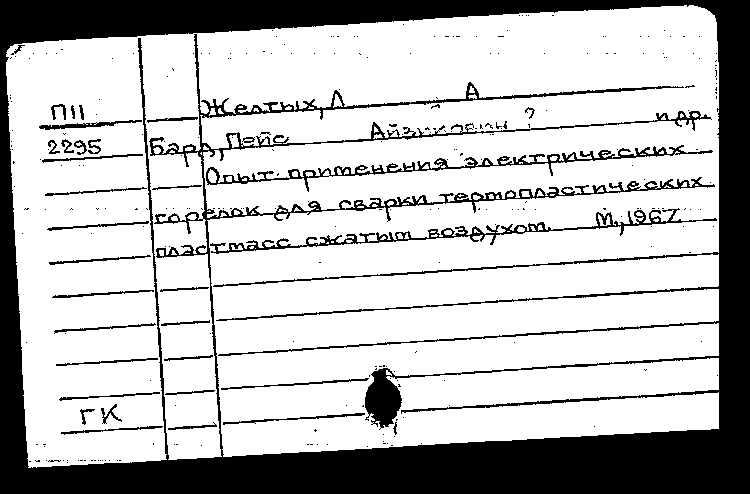 П11 Желтых, Л А
2295 Бард, Пейс Айзикович ? и др.
Опыт применения электрических
горелок для сварки термопластических
пластмасс сжатым воздухом. М., 1967
ГК